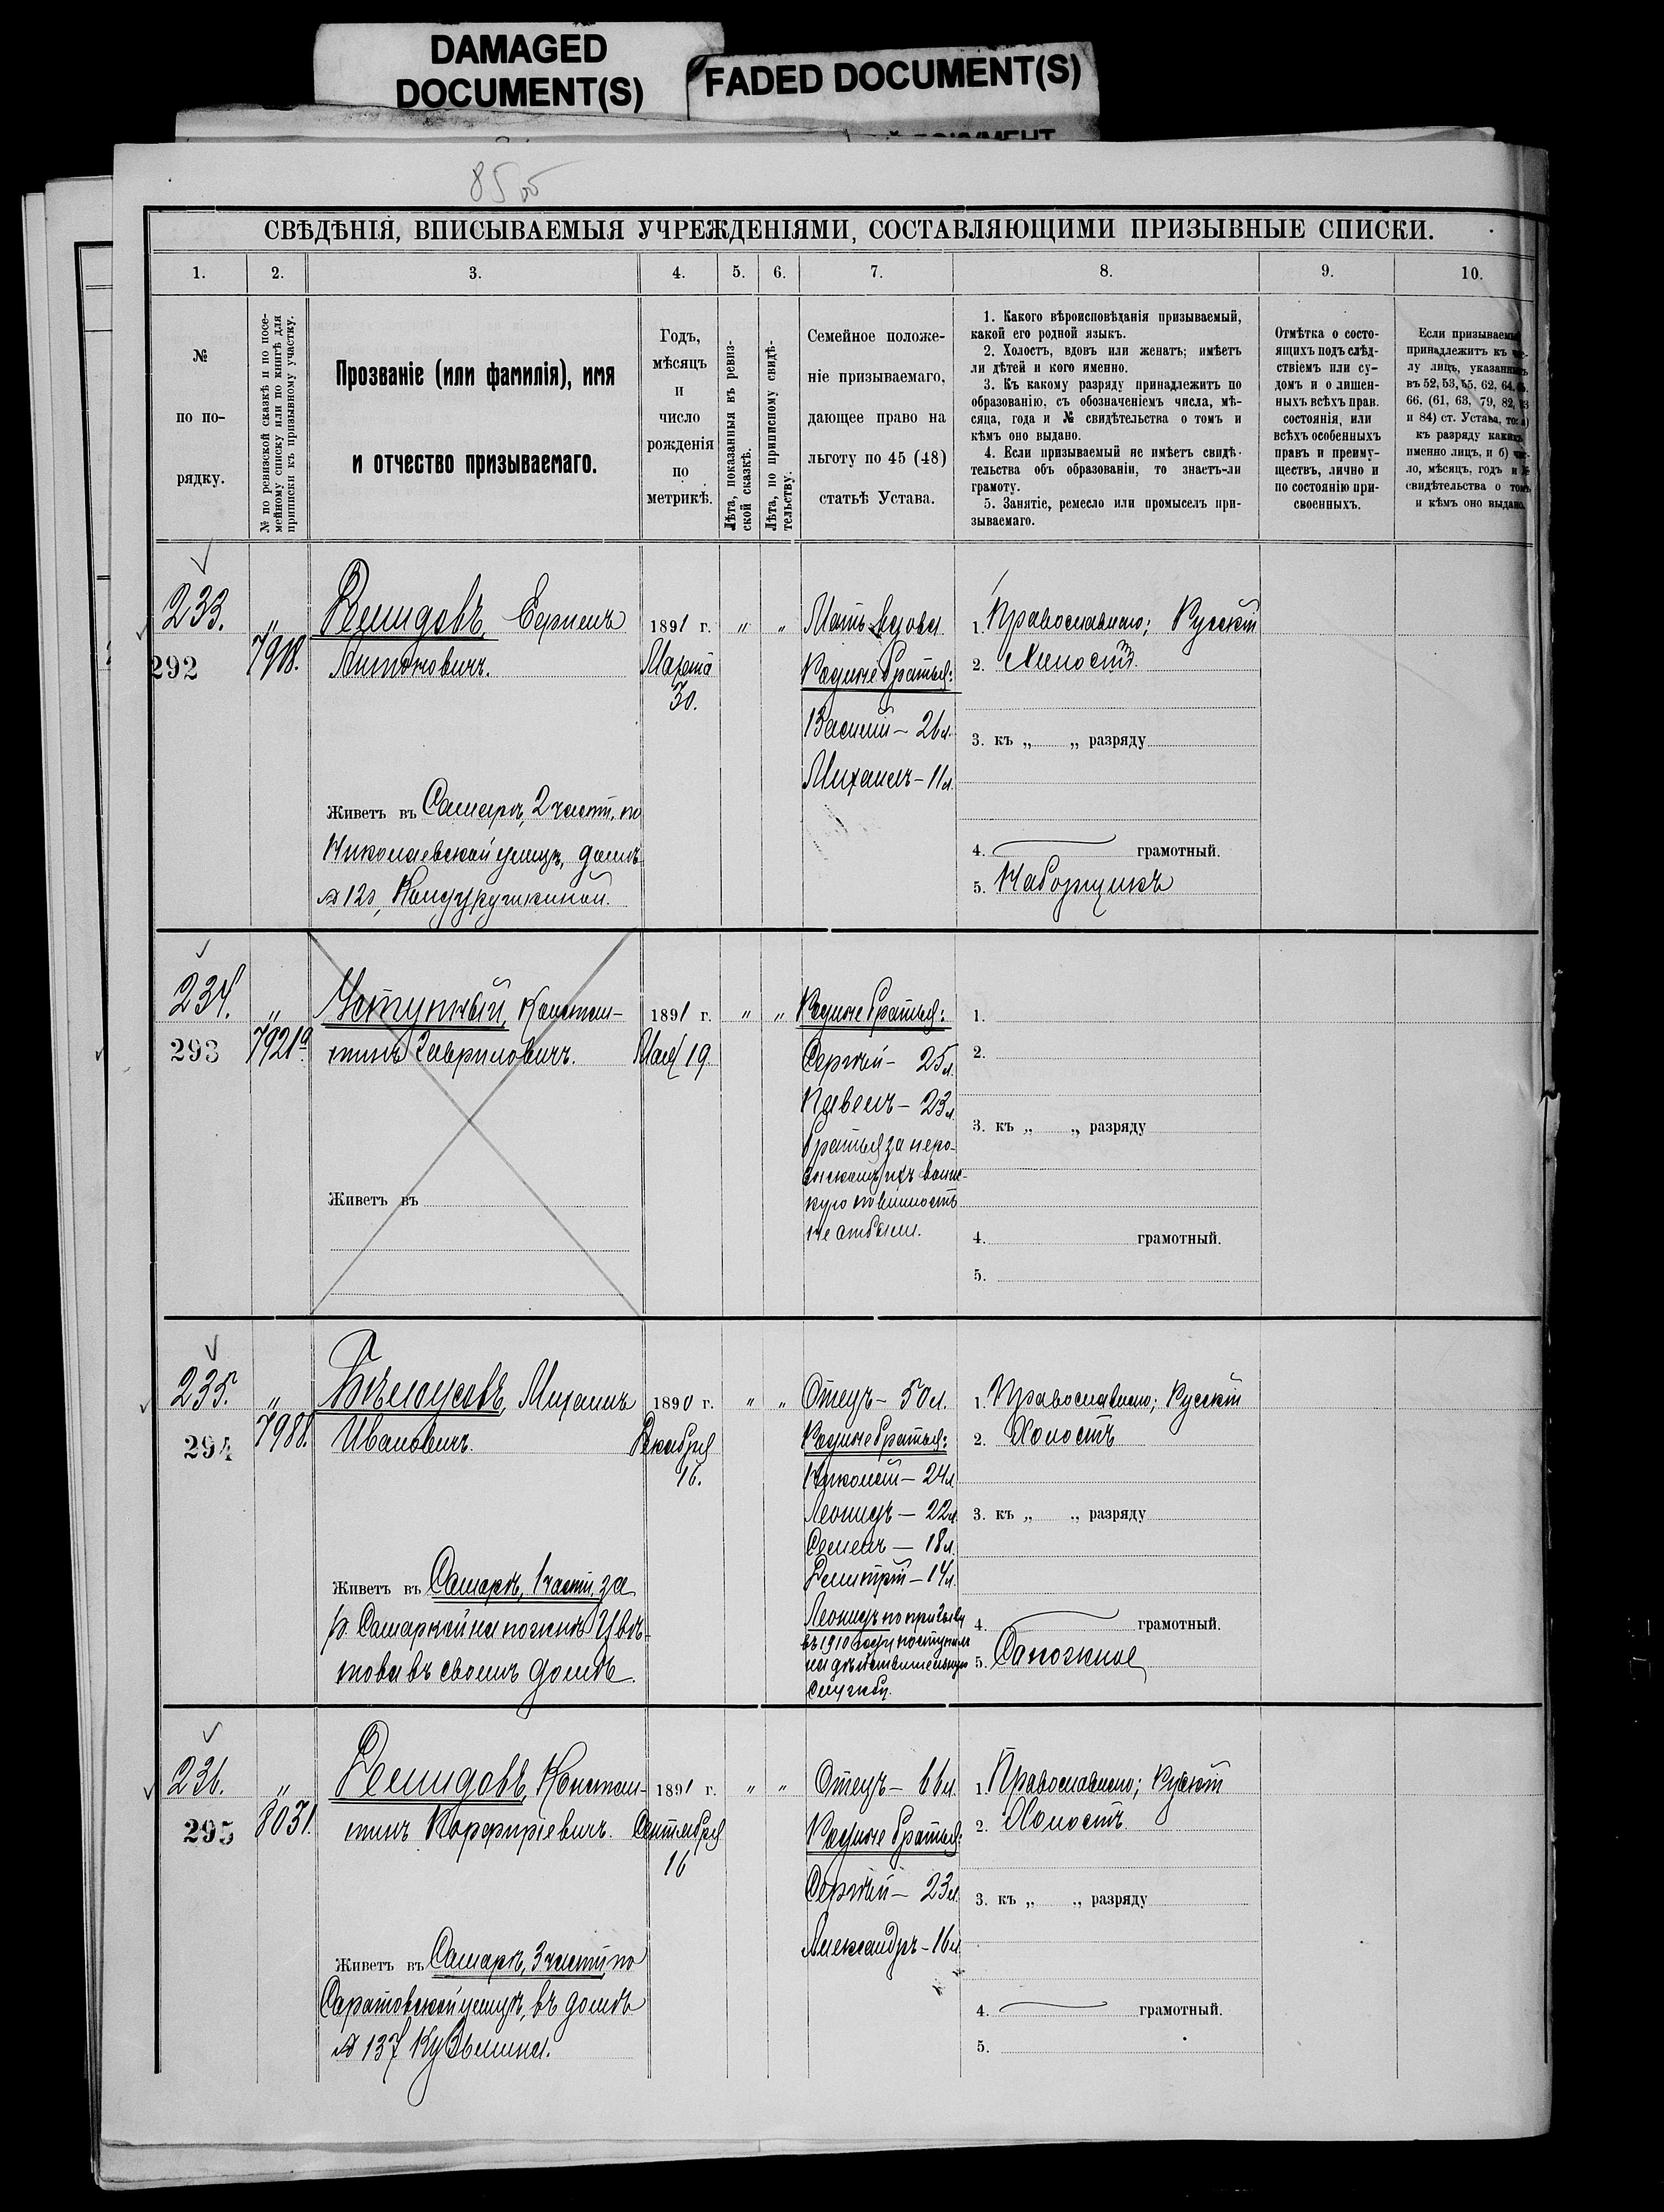 DAMAGED
DOCUMENT(S)
FADED DOCUMENT(S)
85
СВѢДѢНІЯ, ВПИСЫВАЕМЫЯ УЧРЕЖДЕНІЯМИ, СОСТАВЛЯЮЩИМИ ПРИЗЫВНЫЕ СПИСКИ.
1. 2. 3. 4. 5. 6. 7. 8. 9. 10.
№
по по-
рядку.
№ по ревизской сказкѣ и по посе-
мейному списку или по книгѣ для
приписки къ призывному участку.
Прозваніе (или фамилія), имя
и отчество призываемаго.
Годъ,
мѣсяцъ
и
число
рожденія
по
метрикѣ.
Лѣта, показанныя въ ревиз-
ской сказкѣ.
Лѣта, по приписному свидѣ-
тельству.
Семейное положе-
ніе призываемаго,
дающее право на
льготу по 45 (48)
статьѣ Устава.
1. Какого вѣроисповѣданія призываемый,
какой его родной языкъ.
2. Холостъ, вдовъ или женатъ; имѣетъ
ли дѣтей и кого именно.
3. Къ какому разряду принадлежитъ по
образованію, съ обозначеніемъ числа, мѣ-
сяца, года и № свидѣтельства о томъ и
кѣмъ оно выдано.
4. Если призываемый не имѣетъ свидѣ-
тельства объ образованіи, то знаетъ-ли
грамоту.
5. Занятіе, ремесло или промыселъ при-
зываемаго.
Отмѣтка о состо-
ящихъ подъ слѣд-
ствіемъ или су-
домъ и о лишен-
ныхъ всѣхъ прав.
состоянія, или
всѣхъ особенныхъ
правъ и преиму-
ществъ, лично и
по состоянію при-
своенныхъ.
Если призываемый
принадлежитъ къ
лу лицъ, указанныхъ
въ 52, 53, 55, 62, 64,
66, (61, 63, 79, 82,
и 84) ст. Устава, то: а)
къ разряду какихъ
именно лицъ, и б)
ло, мѣсяцъ, годъ и №
свидѣтельства о томъ
и кѣмъ оно выдано.
233.
292
„
7918.
Демидовъ,
Антоновичъ.
Живетъ въ Самарѣ, 2 части, по
Николаевской улицѣ, домъ
№ 120,
1891 г.
Марта
30.
„ „
Мать вдова
Родные братья:
Василій – 26 л.
Михаилъ – 11 л.
1. Православное; Русскій
2. Холостъ.
3. къ „ „ разряду
4. грамотный.
5. Наборщикъ
234.
293
„
7921а
Констан-
тинъ Гавриловичъ.
Живетъ въ
1891 г.
Мая 19.
„ „
Родные братья:
Сергѣй – 25 л.
Павелъ – 23 л.
братья за неро-
зысканіемъ ихъ воинс-
кую повинность
не отбыли.
1.
2.
3. къ „ „ разряду
4. грамотный.
5.
235.
294
„
7988.
Бѣлоусовъ, Михаилъ
Ивановичъ.
Живетъ въ Самарѣ, 1 части, за
р. Самаркой на
това въ своемъ домѣ.
1890 г.
Декабря
16.
„ „
Отецъ – 50 л.
Родные братья:
Николай – 24 л.
Леонидъ – 22 л.
Семенъ – 18 л.
Дмитрій – 14 л.
Леонидъ по призыву
въ 1910 году поступилъ
на дѣйствительную
службу.
1. Православное; Русскій
2. Холостъ
3. къ „ „ разряду
4. грамотный.
5. Сапожное
236.
295
„
8031.
Демидовъ, Констан-
тинъ Порфирьевичъ.
Живетъ въ Самарѣ, 3 части, по
Саратовской улицѣ, въ домѣ
№ 137 Кузьмина.
1891 г.
Сентября
16
„ „
Отецъ – 66 л.
Родные братья:
Сергѣй – 23 л.
Александръ – 16 л.
1. Православное; Русскій
2. Холостъ.
3. къ „ „ разряду
4. грамотный.
5.